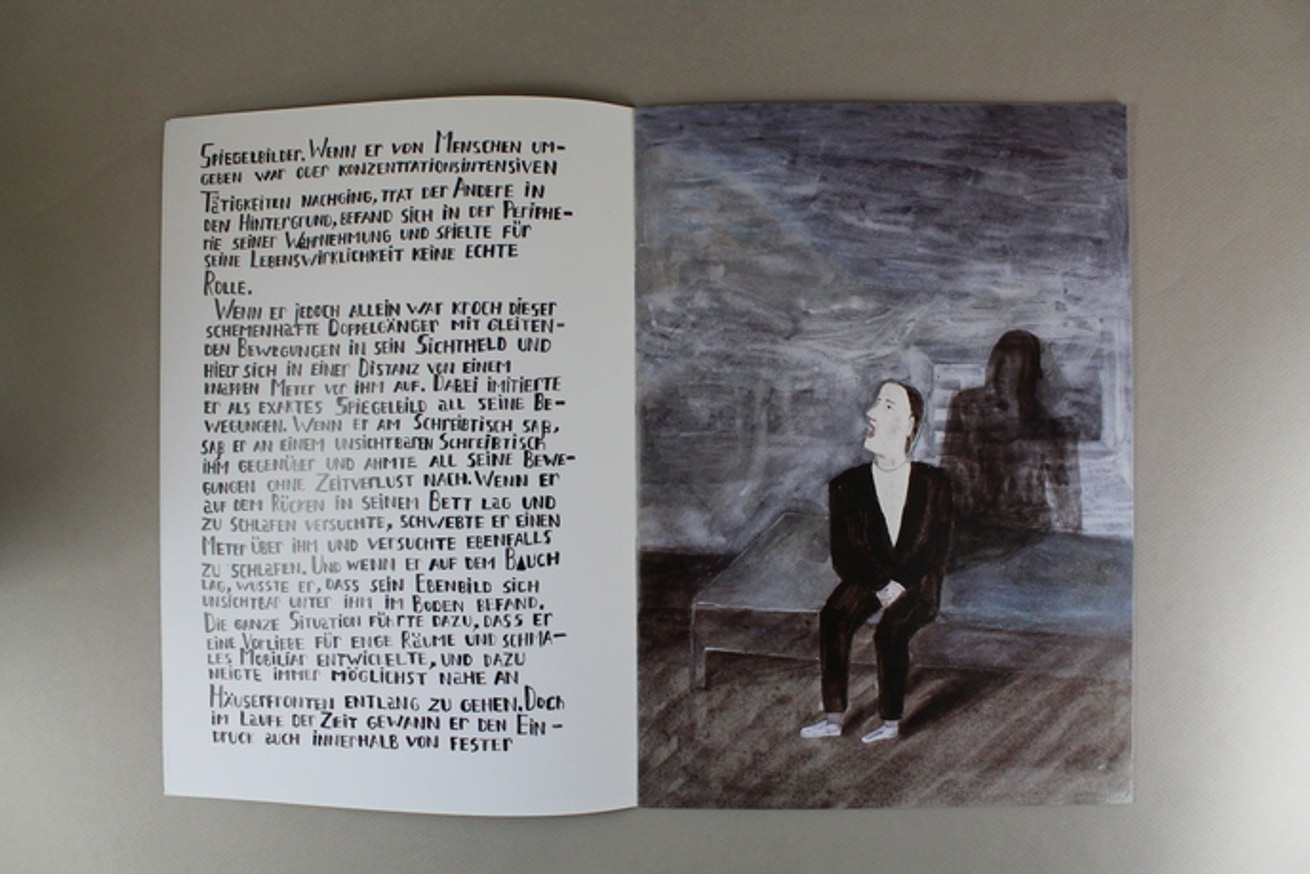 Spiegelbilder. Wenn er von Menschen um-
geben war oder konzentrationsintensiven
Tätigkeiten nachging, trat der Andere in
den Hintergrund, befand sich in der Periphe-
rie seiner Wahrnehmung und spielte für
seine Lebenswirklichkeit keine echte
Rolle.
Wenn er jedoch allein war kroch dieser
schemenhafte Doppelgänger mit gleiten-
den Bewegungen in sein Sichtfeld und
hielt sich in einer Distanz von einem
knappen Meter vor ihm auf. Dabei imitierte
er als exaktes Spiegelbild all seine Be-
wegungen. Wenn er am Schreibtisch saß,
saß er an einem unsichtbaren Schreibtisch
ihm gegenüber und ahmte all seine Bewe-
gungen ohne Zeitverlust nach. Wenn er
auf dem Rücken in seinem Bett lag und
zu schlafen versuchte, schwebte er einen
Meter über ihm und versuchte ebenfalls
zu schlafen. Und wenn er auf dem Bauch
lag, wusste er, dass sein Ebenbild sich
unsichtbar unter ihm im Boden befand.
Die ganze Situation führte dazu, dass er
eine Vorliebe für enge Räume und schma-
les Mobiliar entwickelte, und dazu
neigte immer möglichst nahe an
Häuserfronten entlang zu gehen. Doch
im Laufe der Zeit gewann er den Ein-
druck auch innerhalb von fester